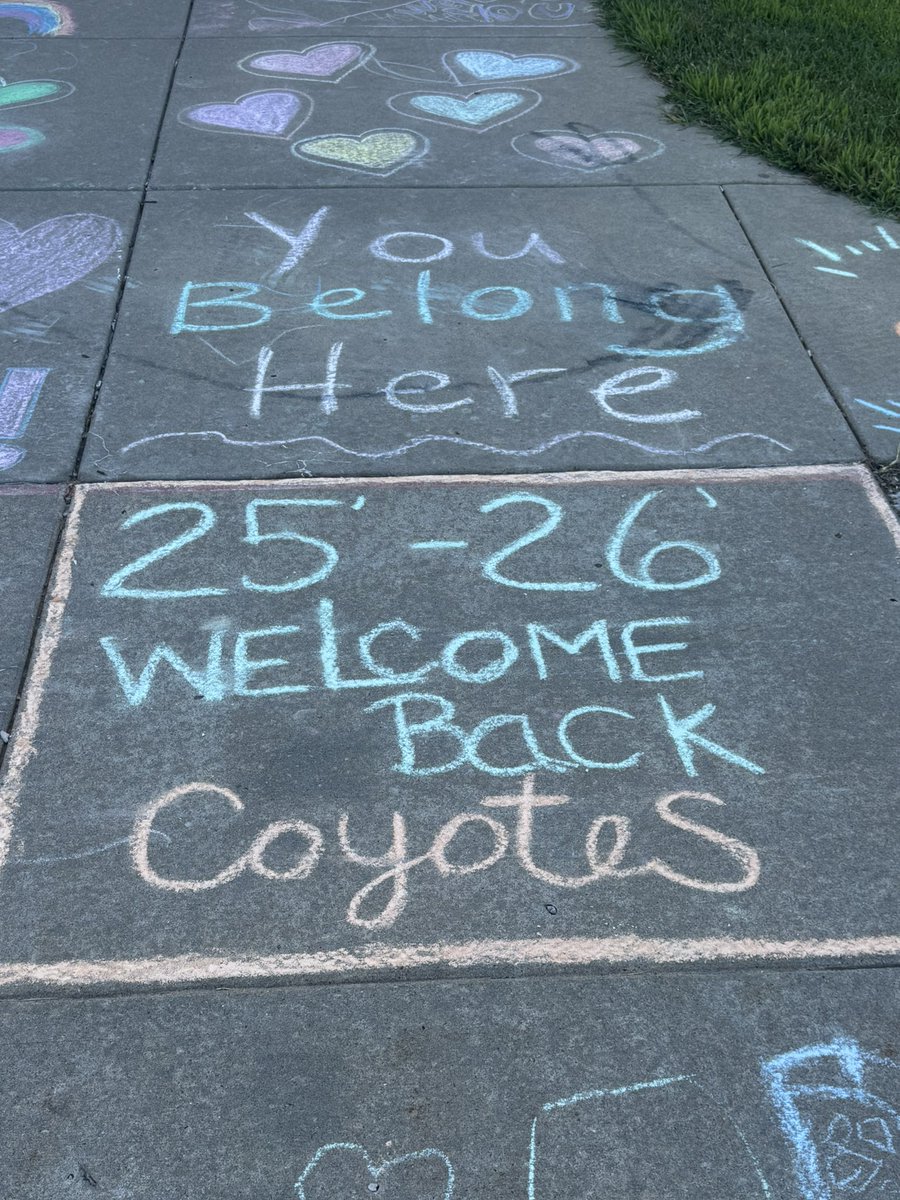 You
Belong
Here
25' - 26'
WELCOME
BACK
Coyotes